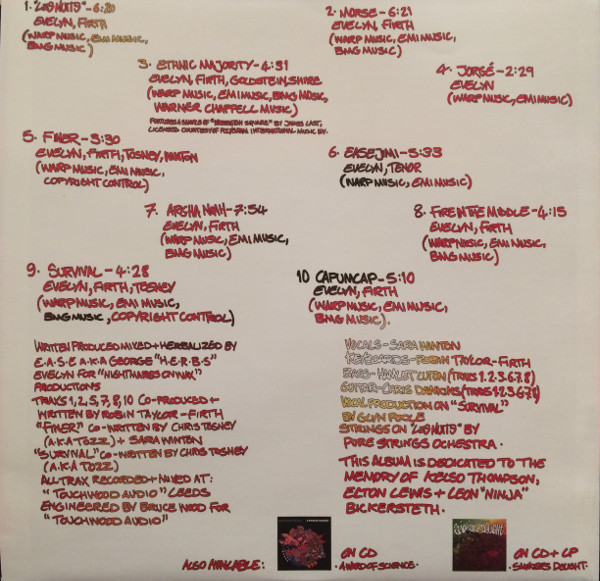 1. "LES NUITS" - 6:20
EVELYN, FIRTH
(WARP MUSIC, EMI MUSIC,
BMG MUSIC
2. MORSE - 6:21
EVELYN, FIRTH
(WARP MUSIC, EMI MUSIC,
BMG MUSIC)
3. ETHNIC MAJORITY - 4:31
EVELYN, FIRTH, GOLDSTEIN, SHIRE
(WARP MUSIC, EMI MUSIC, BMG MUSIC,
WARNER CHAPPELL MUSIC)
FEATURES A SAMPLE OF "WASHINGTON SQUARE" BY JAMES LAST,
LICENSED COURTESY OF POLYGRAM INTERNATIONAL MUSIC BV.
4. JORGÉ - 2:29
EVELYN
(WARP MUSIC, EMI MUSIC)
5. FINER - 3:30
EVELYN, FIRTH, TOSNEY, WINTON
(WARP MUSIC, EMI MUSIC,
COPYRIGHT CONTROL)
6. EASE JIMI - 5:33
EVELYN, TENOR
(WARP MUSIC, EMI MUSIC)
7. ARGHA NOAH - 7:54
EVELYN, FIRTH
(WARP MUSIC, EMI MUSIC,
BMG MUSIC)
8. FIRE IN THE MIDDLE - 4:15
EVELYN, FIRTH
(WARP MUSIC, EMI MUSIC,
BMG MUSIC)
9. SURVIVAL - 4:28
EVELYN, FIRTH, TOSNEY
(WARP MUSIC, EMI MUSIC,
BMG MUSIC, COPYRIGHT CONTROL)
10 CAPUMCAP - 5:10
EVELYN, FIRTH
(WARP MUSIC, EMI MUSIC,
BMG MUSIC).
WRITTEN PRODUCED MIXED + HERBALIZED BY
E.A.S.E A.K.A GEORGE "H.E.R.B.S"
EVELYN FOR "NIGHTMARES ON WAX"
PRODUCTIONS
TRAX 1, 2, 5, 7, 8, 10 CO-PRODUCED +
WRITTEN BY ROBIN TAYLOR - FIRTH
"FINER" CO-WRITTEN BY CHRIS TOSNEY
(A.K.A TOZZ) + SARA WINTON
"SURVIVAL" CO-WRITTEN BY CHRIS TOSNEY
(A.K.A TOZZ)
ALL TRAX RECORDED + MIXED AT:
"TOUCHWOOD AUDIO" LEEDS
ENGINEERED BY BRUCE WOOD FOR
"TOUCHWOOD AUDIO"
VOCALS - SARA WINTON
KEYBOARDS - ROBIN TAYLOR-FIRTH
BASS - HAMLET LUTON (TRAX 1.2.3.6.7.8)
GUITAR - CHRIS DAWKINS (TRAX 1.2.3.6.7.8)
VOCAL PRODUCTION ON "SURVIVAL"
BY GLYN POOLE
STRINGS ON "LES NUITS" BY
PURE STRINGS OCHESTRA.
THIS ALBUM IS DEDICATED TO THE
MEMORY OF KELSO THOMPSON,
ELTON LEWIS + LEON "NINJA"
BICKERSTETH.
ALSO AVAILABLE:
ON CD
· A WORD OF SCIENCE.
ON CD + LP
· SMOKERS DELIGHT.